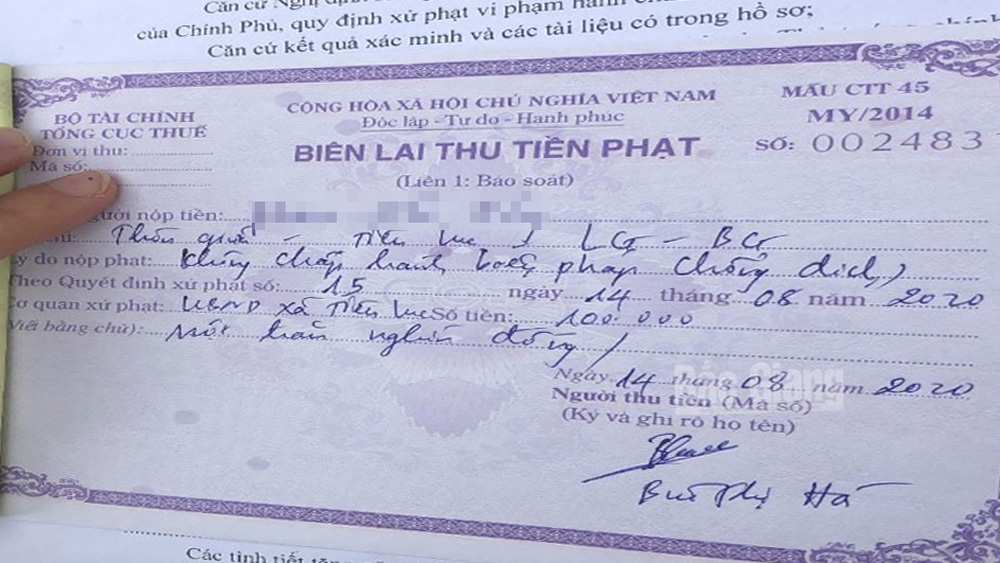 Căn cứ Nghị định
của Chính Phủ, quy định xử phạt vi phạm hành
Căn cứ kết quả xác minh và các tài liệu có trong hồ sơ;
BỘ TÀI CHÍNH
TỔNG CỤC THUẾ
Đơn vị thu:
Mã số:
CỘNG HÒA XÃ HỘI CHỦ NGHĨA VIỆT NAM
Độc lập - Tự do - Hạnh phúc
BIÊN LAI THU TIỀN PHẠT
(Liên 1: Báo soát)
MẪU CTT 45
MY/2014
SỐ: 002483
người nộp tiền:
Thôn - Tiên Lục 1 LG - BG
ý do nộp phạt: Không chấp hành pháp chống dịch
Theo Quyết định xử phạt số: 15 ngày 14 tháng 08 năm 2020
Cơ quan xử phạt: UBND xã Tiên Lục Số tiền: 100.000
(Viết bằng chữ): Một trăm nghìn đồng /
Ngày 14 tháng 08 năm 2020
Báo Giang
Người thu tiền (Mã số)
(Ký và ghi rõ họ tên)
Bùi Thị Hà
Các tình tiết tăng